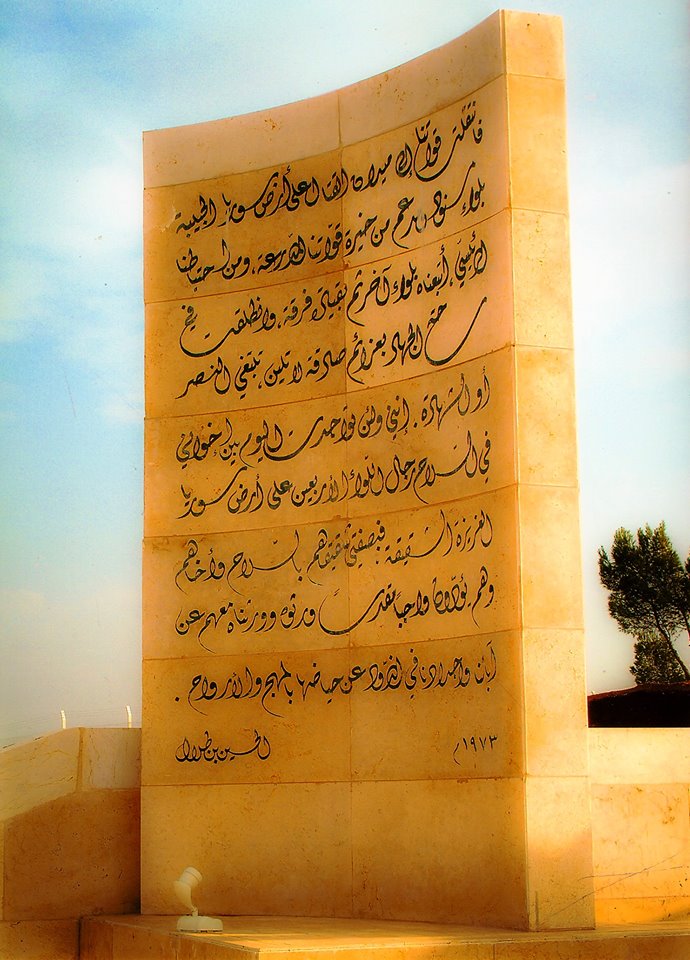 فانتقلت قواتنا إلى ميدان القتال على أرض سوريا الحبيبة
بلواء مسنود ومدعم من خيرة قواتنا المدرعة، ومن احتياطنا
الرئيسي، أتبعناه بلواء آخر ثم بقيادة فرقة، وانطلقت في
ساح الجهاد بعزائم صادقة لا تلين، تبتغي النصر
أو الشهادة. إنني ولئن تواجدت اليوم بين إخواني
في السلاح رجال اللواء الأربعين على أرض سوريا
العزيزة الشقيقة فبصفتي شقيقاهم بالسلاح وأخاهم
وهم يؤدون واجباً مقدساً ورثوه وورثناه معهم عن
آبائنا وأجدادنا في الذود عن حياضها بالمهج والأرواح.
الحسين بن طلال
١٩٧٣م